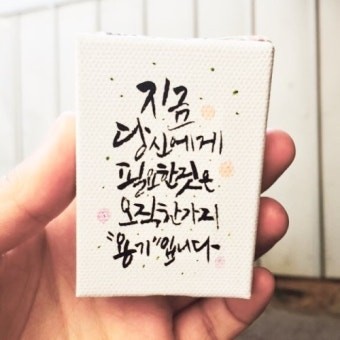 지금
당신에게
필요한것은
오직한가지
"용기"입니다